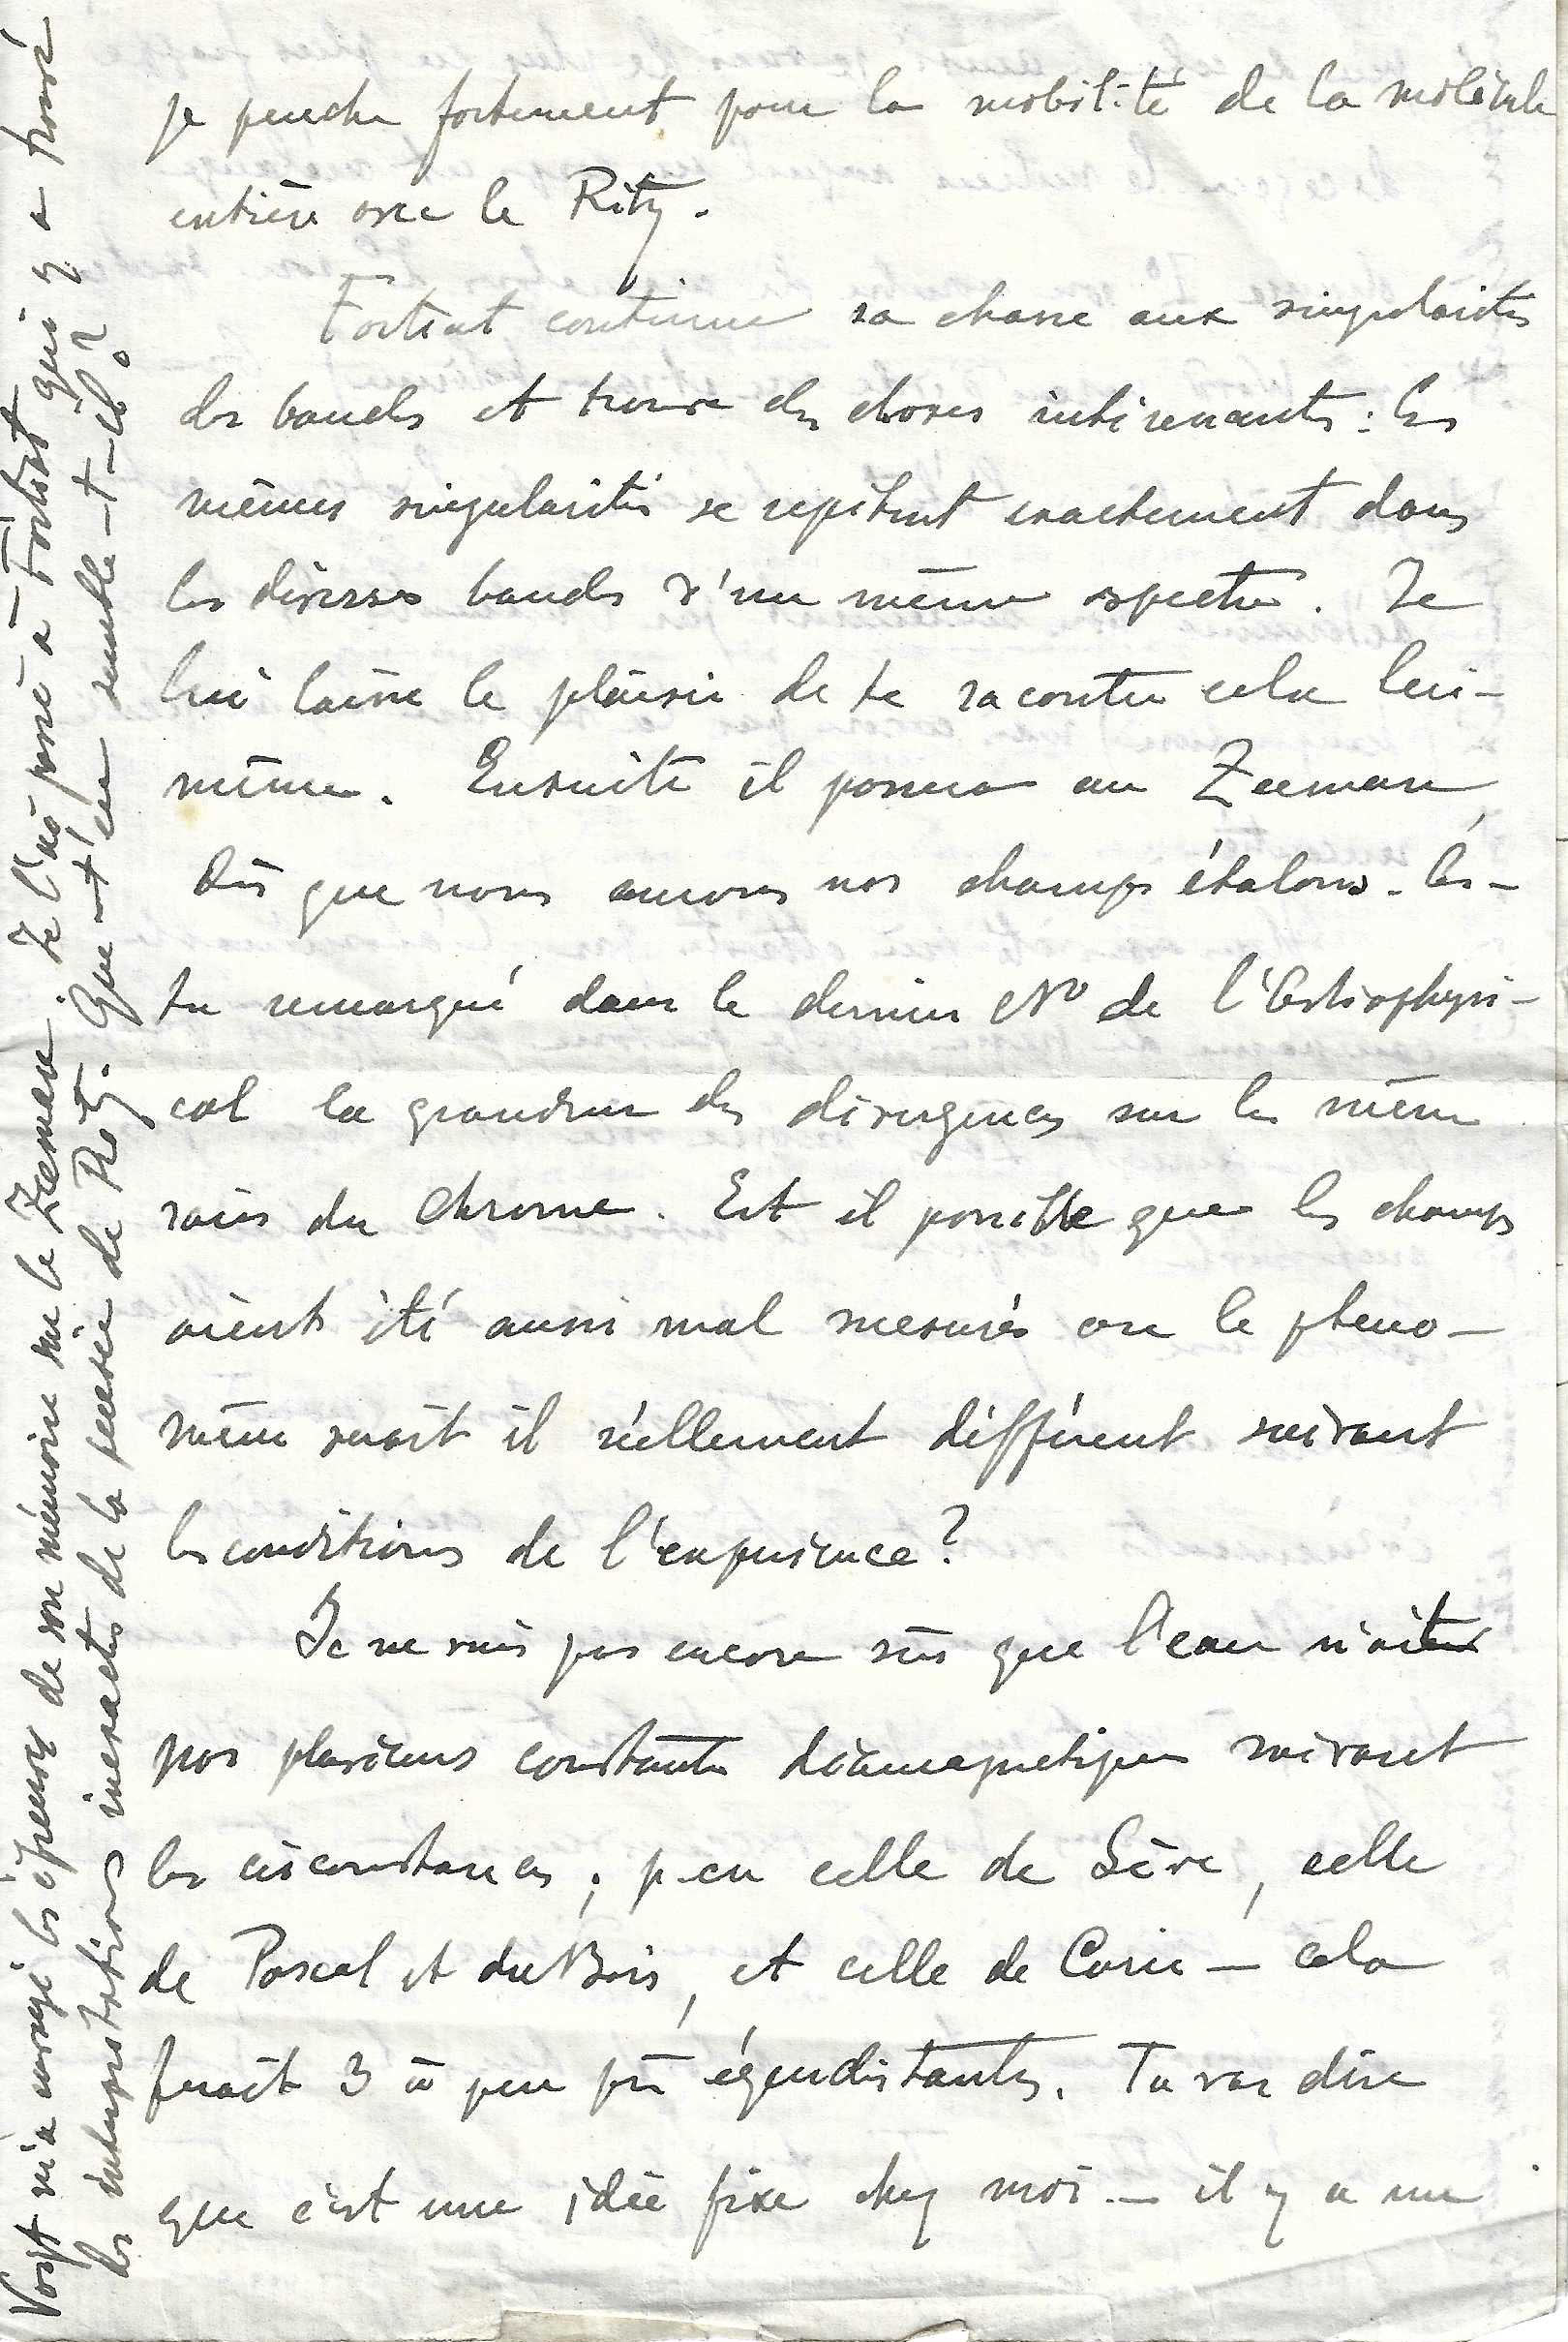 je penche fortement pour la mobilité de la molécule
entière avec le Ritz.
Fortrat continue sa chasse aux singularités
des bandes et trouve des choses intéressantes : les
mêmes singularités se répètent exactement dans
les diverses bandes d'un même spectre. Je
lui laisse le plaisir de te raconter cela lui-
même. Ensuite il passera au Zeeman,
dès que nous aurons nos champs étalons. As-
tu remarqué dans le dernier No de l'Astrophysi-
cal la grandeur des divergences sur les mêmes
raies du Chrome. Est il possible que les champs
aient été aussi mal mesurés ou le phéno-
mène serait il réellement différent suivant
les conditions de l'expérience ?
Je ne suis pas encore sûr que l'eau n'ait
pas plusieurs constantes diamagnétiques suivant
les circonstances ; celle de Sève, celle
de Pascal et du Bois, et celle de Curie — cela
ferait 3 à peu près équidistantes. Tu vas dire
que c'est une idée fixe chez moi — il y a un
Voigt m'a envoyé les épreuves de son mémoire sur le Zeeman. Je l'ai passé à Fortrat qui y a trouvé
des interprétations inexactes de la pensée de Ritz. Que t'en semble-t-il ?